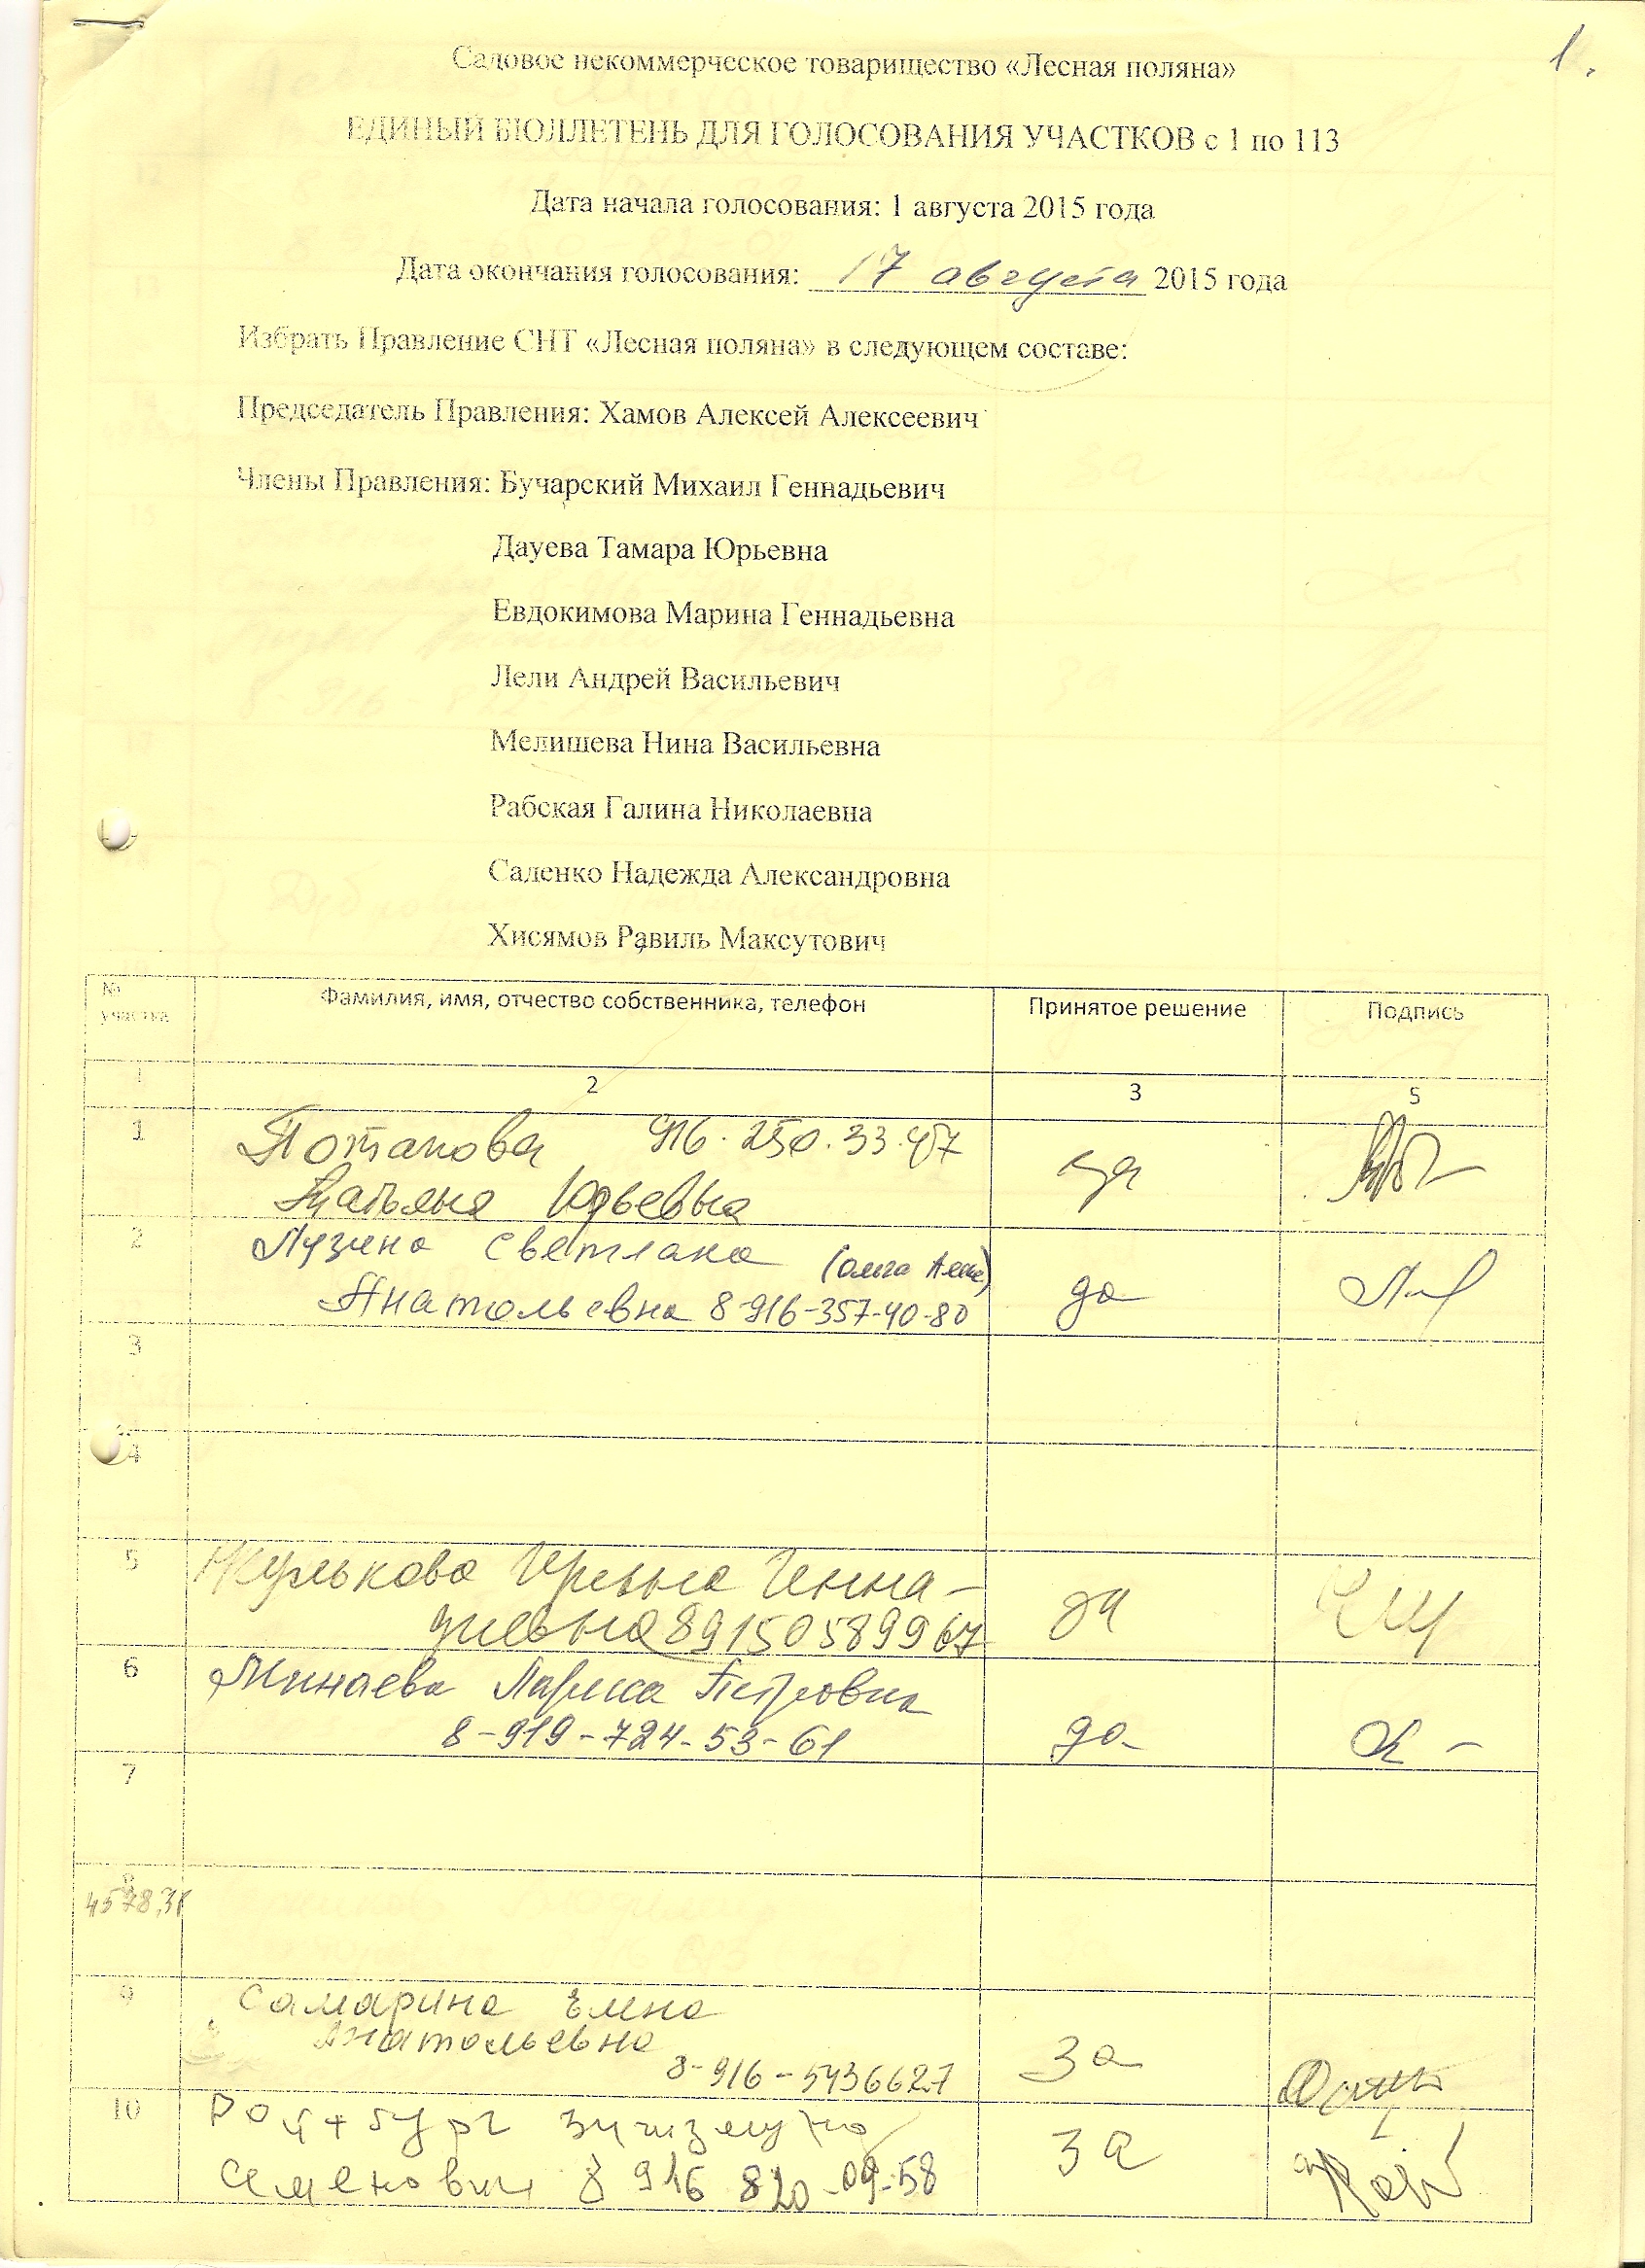 1.
Садовое некоммерческое товарищество «Лесная поляна»
ЕДИНЫЙ БЮЛЛЕТЕНЬ ДЛЯ ГОЛОСОВАНИЯ УЧАСТКОВ с 1 по 113
Дата начала голосования: 1 августа 2015 года
Дата окончания голосования: 17 августа 2015 года
Избрать Правление СНТ «Лесная поляна» в следующем составе:
Председатель Правления: Хамов Алексей Алексеевич
Члены Правления: Бучарский Михаил Геннадьевич
Дауева Тамара Юрьевна
Евдокимова Марина Геннадьевна
Лели Андрей Васильевич
Мелишева Нина Васильевна
Рабская Галина Николаевна
Саленко Надежда Александровна
Хисямов Равиль Максутович
№ участка Фамилия, имя, отчество собственника, телефон Принятое решение Подпись
1 2 3 5
1 Потапова 916.250.33.47 да
Татьяна Юрьевна
2 Лузина Светлана (Ольга
Анатольевна 8-916-357-40-80 да
3
4
5 Ирина
89150589967 да
6 Минаева Лариса Петровна
8-919-724-53-61 да
7
8
4578,31
9 Самарина Елена
Анатольевна
8-916-5436627 за
10 Ройтбург
Семенович 8 916 820-09-58 за